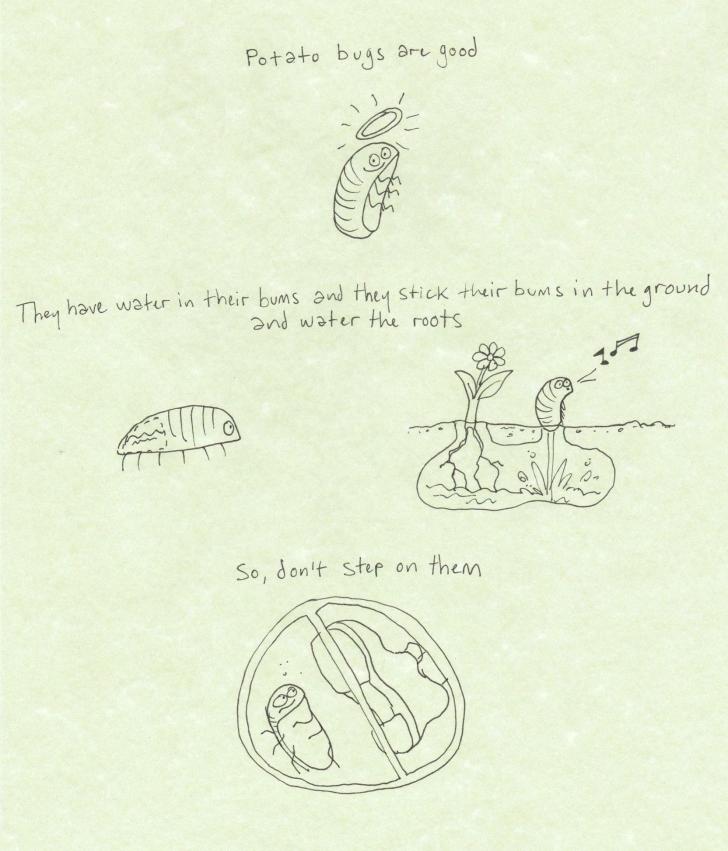 Potato bugs are good
They have water in their bums and they stick their bums in the ground
and water the roots
So, don't step on them